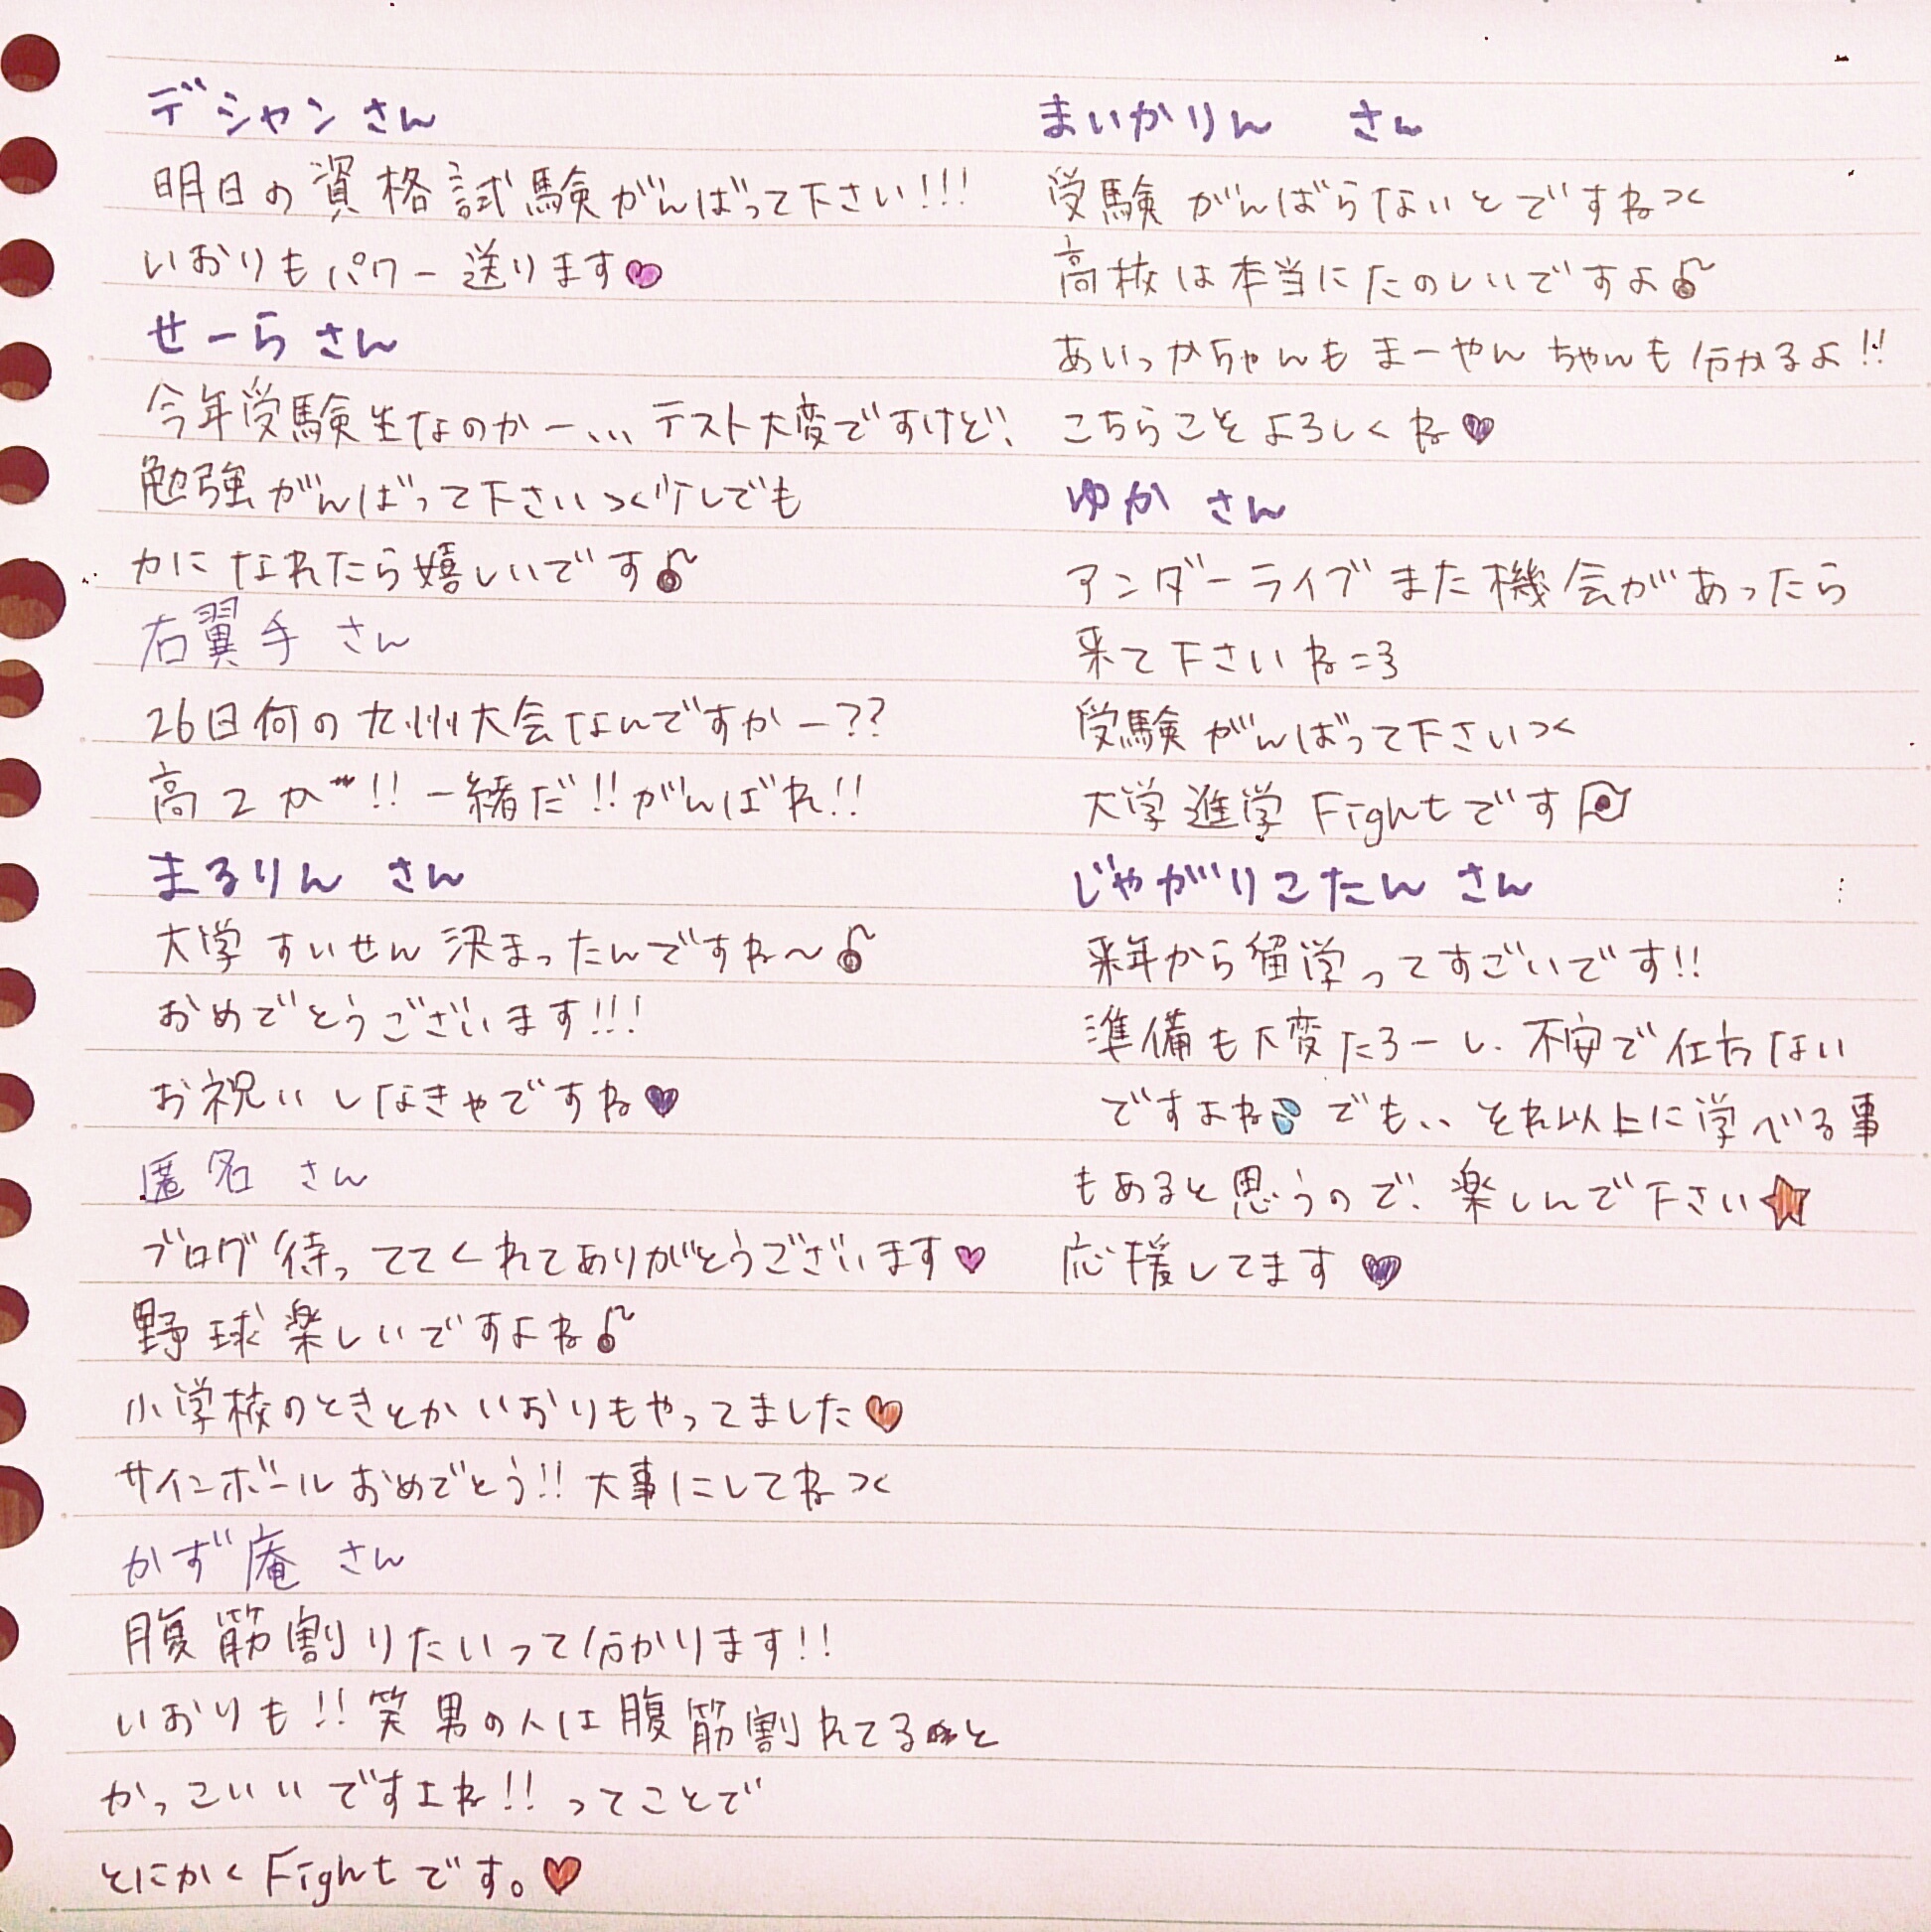 デシャンさん
明日の資格試験がんばって下さい!!!
いおりもパワー送ります♥
せーらさん
今年受験生なのかー、、、テスト大変ですけど、
勉強がんばって下さい><少しでも
力になれたら嬉しいです♪
右翼手さん
26日何の九州大会なんですかー??
高2か〜!!一緒だ!!がんばれ!!
まるりん さん
大学すいせん決まったんですね〜♪
おめでとうございます!!!
お祝いしなきゃですね♥
匿名 さん
ブログ待っててくれてありがとうございます♥
野球楽しいですよね♪
小学校のときとかいおりもやってました♥
サインボールおめでとう!!大事にしてね><
かず庵 さん
腹筋割りたいって分かります!!
いおりも!!笑 男の人は腹筋割れてると
かっこいいですよね!!ってことで
とにかくFightです。♥
まいかりん さん
受験がんばらないとですね><
高校は本当にたのしいですよ♪
あいっかちゃんもまーやんちゃんも分かるよ!!
こちらこそよろしくね♥
ゆか さん
アンダーライブまた機会があったら
来て下さいね=3
受験がんばって下さい><
大学進学Fightです
じゃがりこたん さん
来年から留学ってすごいです!!
準備も大変だろーし、不安で仕方ない
ですよね💦でも、、それ以上に学べる事
もあると思うので、楽しんで下さい★
応援してます♥